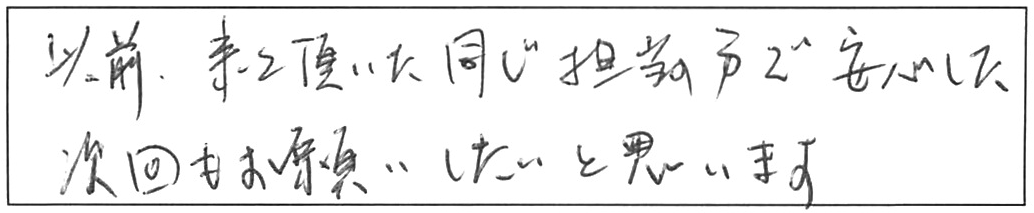 以前、来て頂いた同じ担当の方で安心した
次回もお願いしたいと思います